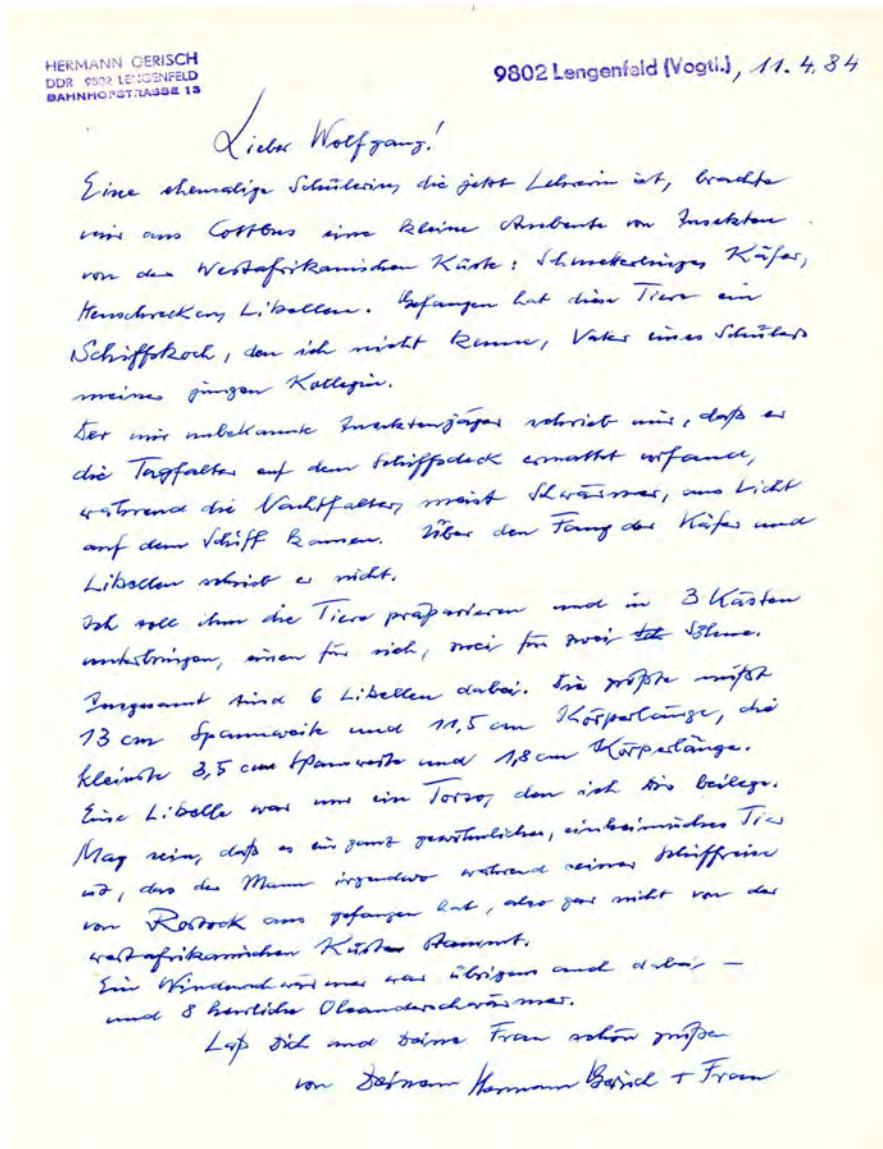 HERMANN GERISCH
DDR 9802 LENGENFELD
BAHNHOFSTRASSE 13
9802 Lengenfeld (Vogtl.), 11. 4. 84
Lieber Wolfgang!
Eine ehemalige Schülerin, die jetzt Lehrerin ist, brachte
mir aus Cottbus eine kleine Ausbeute von Insekten
von der Westafrikanischen Küste: Schmetterlinge, Käfer,
Heuschrecken, Libellen. Gefangen hat diese Tiere ein
Schiffskoch, den ich nicht kenne, Vater eines Schülers
meiner jungen Kollegin.
Der mir unbekannte Insektenjäger schrieb mir, daß er
die Tagfalter auf dem Schiffsdeck ermattet vorfand,
während die Nachtfalter, meist Schwärmer, ans Licht
auf dem Schiff kamen. Über den Fang der Käfer und
Libellen schrieb er nicht.
Ich soll ihm die Tiere präparieren und in 3 Kästen
unterbringen, einen für sich, zwei für zwei Söhne.
Insgesamt sind 6 Libellen dabei. Die größte mißt
13 cm Spannweite und 11,5 cm Körperlänge, die
kleinste 3,5 cm Spannweite und 1,8 cm Körperlänge.
Eine Libelle war nur ein Torso, den ich Dir beilege.
Mag sein, daß es ein ganz gewöhnliches, einheimisches Tier
ist, das der Mann irgendwo während seiner Schiffreise
von Rostock aus gefangen hat, also gar nicht von der
westafrikanischen Küste stammt.
Ein Windenschwärmer war übrigens auch dabei –
und 8 herrliche Oleanderschwärmer.
Laß Dich und Deine Frau schön grüßen
von Deinem Hermann Gerisch + Frau